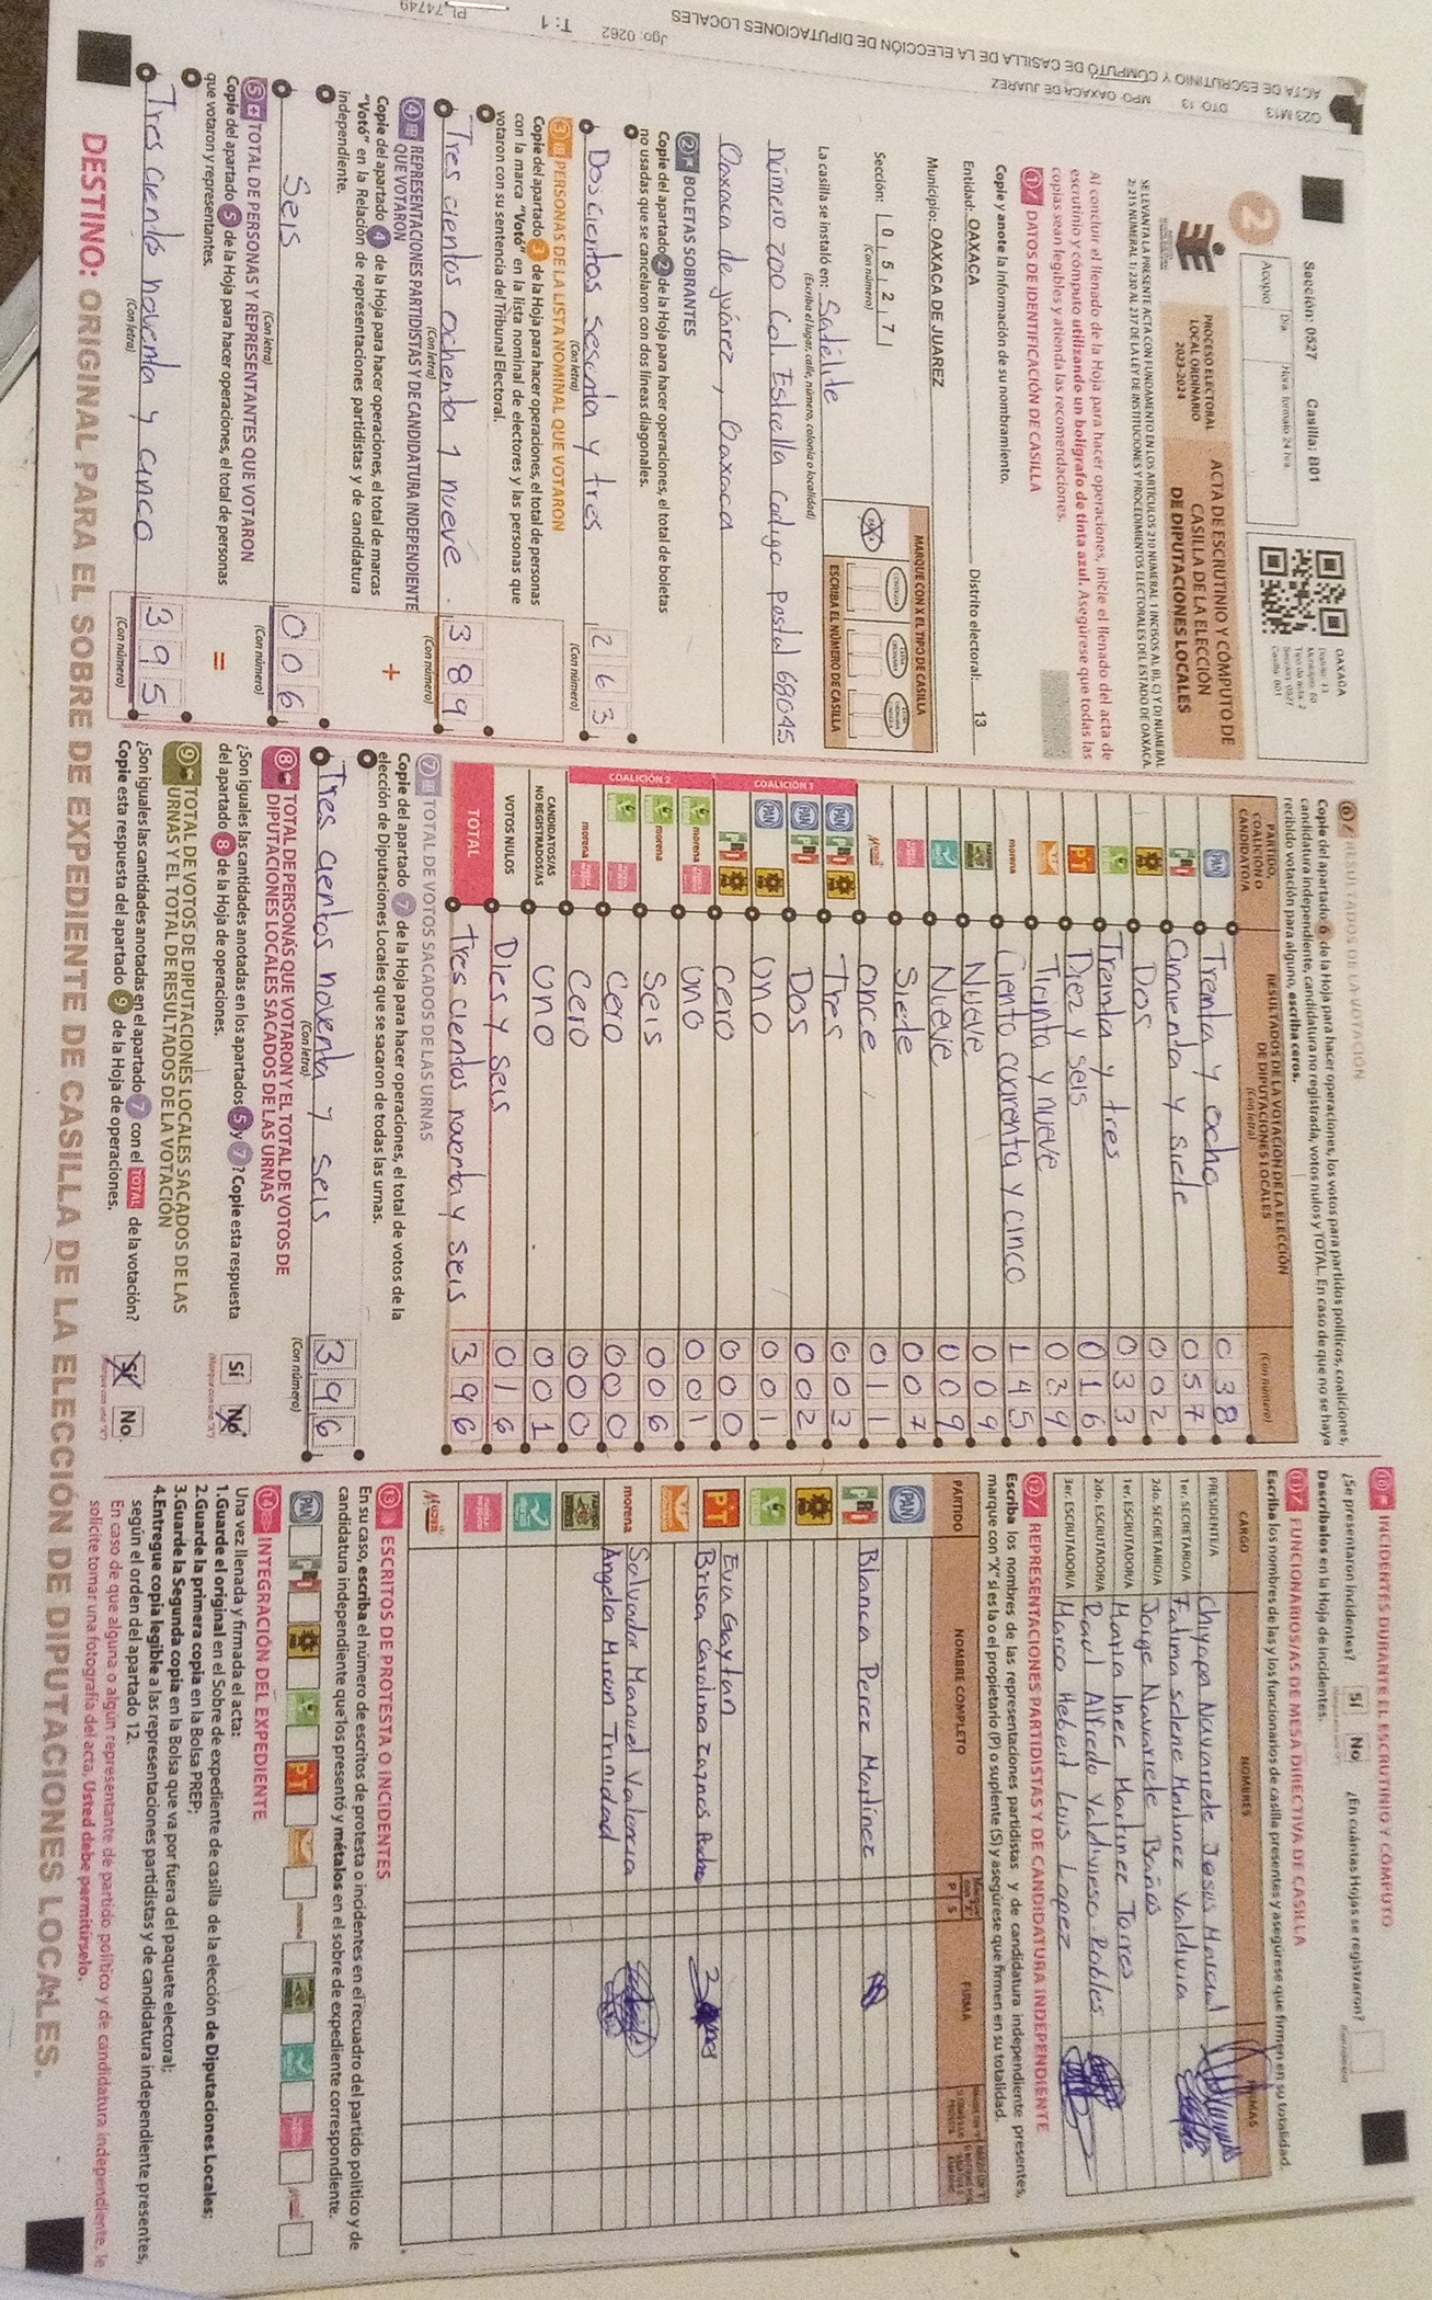 ACTA DE ESCRUTINIO Y CÓMPUTO DE CASILLA DE LA ELECCIÓN DE DIPUTACIONES LOCALES
O23 M13 DTO: 13 MPO: OAXACA DE JUAREZ Jgo: 0262 T: 1 PL_74749
2
Sección: 0527 Casilla: B01
Día Hora: formato 24 hrs.
Acopio
OAXACA
Casilla: B01
PROCESO ELECTORAL
LOCAL ORDINARIO
2023-2024
ACTA DE ESCRUTINIO Y CÓMPUTO DE
CASILLA DE LA ELECCIÓN
DE DIPUTACIONES LOCALES
SE LEVANTA LA PRESENTE ACTA CON FUNDAMENTO EN LOS ARTÍCULOS 210 NUMERAL 1 INCISOS A), B), C) Y D) NUMERAL
2; 215 NUMERAL 1; 230 AL 237 DE LA LEY DE INSTITUCIONES Y PROCEDIMIENTOS ELECTORALES DEL ESTADO DE OAXACA.
Al concluir el llenado de la Hoja para hacer operaciones, inicie el llenado del acta de
escrutinio y cómputo utilizando un bolígrafo de tinta azul. Asegúrese que todas las
copias sean legibles y atienda las recomendaciones.
1 DATOS DE IDENTIFICACIÓN DE CASILLA
Copie y anote la información de su nombramiento.
Entidad: OAXACA Distrito electoral: 13
Municipio: OAXACA DE JUAREZ
MARQUE CON X EL TIPO DE CASILLA
Sección: 0 5 2 7
(Con número)
ESCRIBA EL NÚMERO DE CASILLA
La casilla se instaló en: Satélite
(Escriba el lugar, calle, número, colonia o localidad)
número 200 Col. Estrella Codigo postal 68045
Oaxaca de juárez, Oaxaca
2 BOLETAS SOBRANTES
Copie del apartado 2 de la Hoja para hacer operaciones, el total de boletas
no usadas que se cancelaron con dos líneas diagonales.
Doscientas sesenta y tres 2 6 3
(Con letra) (Con número)
3 PERSONAS DE LA LISTA NOMINAL QUE VOTARON
Copie del apartado 3 de la Hoja para hacer operaciones, el total de personas
con la marca "Votó" en la lista nominal de electores y las personas que
votaron con su sentencia del Tribunal Electoral.
Tres cientos ochenta y nueve. 3 8 9
(Con letra) (Con número)
4 REPRESENTACIONES PARTIDISTAS Y DE CANDIDATURA INDEPENDIENTE
QUE VOTARON
Copie del apartado 4 de la Hoja para hacer operaciones, el total de marcas
"Votó" en la Relación de representaciones partidistas y de candidatura
independiente.
+
Seis 0 0 6
(Con letra) (Con número)
5 TOTAL DE PERSONAS Y REPRESENTANTES QUE VOTARON
Copie del apartado 5 de la Hoja para hacer operaciones, el total de personas
que votaron y representantes.
=
Tres cientos noventa y cinco 3 9 5
(Con letra) (Con número)
6 RESULTADOS DE LA VOTACIÓN
Copie del apartado 6 de la Hoja para hacer operaciones, los votos para partidos políticos, coaliciones,
candidatura independiente, candidatura no registrada, votos nulos y TOTAL. En caso de que no se haya
recibido votación para alguno, escriba ceros.
PARTIDO,
COALICIÓN O
CANDIDATO/A
RESULTADOS DE LA VOTACIÓN DE LA ELECCIÓN
DE DIPUTACIONES LOCALES
(Con letra)
(Con número)
PAN Treinta y ocho 0 3 8
PRI Cincuenta y siete 0 5 7
PRD Dos 0 0 2
Treinta y tres 0 3 3
PT Diez y seis 0 1 6
Treinta y nueve 0 3 9
morena Ciento cuarenta y cinco 1 4 5
Nueve 0 0 9
Nueve 0 0 9
Siete 0 0 7
Mujer Once 0 1 1
COALICIÓN 1
PAN PRI PRD Tres 0 0 3
PAN PRI Dos 0 0 2
PAN PRD Uno 0 0 1
PRI PRD Cero 0 0 0
COALICIÓN 2
morena Uno 0 0 1
morena Seis 0 0 6
Cero 0 0 0
morena Cero 0 0 0
CANDIDATOS/AS
NO REGISTRADOS/AS Uno 0 0 1
VOTOS NULOS Dies y Seis 0 1 6
TOTAL Tres cientos noventa y seis 3 9 6
7 TOTAL DE VOTOS SACADOS DE LAS URNAS
Copie del apartado 7 de la Hoja para hacer operaciones, el total de votos de la
elección de Diputaciones Locales que se sacaron de todas las urnas.
Tres cientos noventa y seis 3 9 6
(Con letra) (Con número)
8 TOTAL DE PERSONAS QUE VOTARON Y EL TOTAL DE VOTOS DE
DIPUTACIONES LOCALES SACADOS DE LAS URNAS
¿Son iguales las cantidades anotadas en los apartados 5 y 7? Copie esta respuesta
del apartado 8 de la Hoja de operaciones.
Sí No
9 TOTAL DE VOTOS DE DIPUTACIONES LOCALES SACADOS DE LAS
URNAS Y EL TOTAL DE RESULTADOS DE LA VOTACIÓN
¿Son iguales las cantidades anotadas en el apartado 7 con el TOTAL de la votación?
Copie esta respuesta del apartado 9 de la Hoja de operaciones.
Sí No
10 INCIDENTES DURANTE EL ESCRUTINIO Y CÓMPUTO
¿Se presentaron incidentes? Sí No ¿En cuántas Hojas se registraron?
Descríbalos en la Hoja de incidentes.
11 FUNCIONARIOS/AS DE MESA DIRECTIVA DE CASILLA
Escriba los nombres de las y los funcionarios de casilla presentes y asegúrese que firmen en su totalidad.
CARGO NOMBRES FIRMAS
PRESIDENTE/A Chiyapa Navarrete Jesus Marcial
1er. SECRETARIO/A Fatima selene Martinez Valdivia
2do. SECRETARIO/A Jorge Navarrete Baños
1er. ESCRUTADOR/A Maria Inez Martinez Torres
2do. ESCRUTADOR/A Raul Alfredo Valdivieso Robles
3er. ESCRUTADOR/A Marco Hebert Luis Lopez
12 REPRESENTACIONES PARTIDISTAS Y DE CANDIDATURA INDEPENDIENTE
Escriba los nombres de las representaciones partidistas y de candidatura independiente presentes,
marque con "X" si es la o el propietario (P) o suplente (S) y asegúrese que firmen en su totalidad.
PARTIDO NOMBRE COMPLETO P S FIRMA
PAN
PRI Blanca Perez Martinez
PRD
PT Eva Gaytan
Brisa Carolina
morena Salvador Manuel Valencia
Angela Miron Trinidad
Mujer
13 ESCRITOS DE PROTESTA O INCIDENTES
En su caso, escriba el número de escritos de protesta o incidentes en el recuadro del partido político y de
candidatura independiente que los presentó y métalos en el sobre de expediente correspondiente.
PAN PRI PRD PT
14 INTEGRACIÓN DEL EXPEDIENTE
Una vez llenada y firmada el acta:
1.Guarde el original en el Sobre de expediente de casilla de la elección de Diputaciones Locales;
2.Guarde la primera copia en la Bolsa PREP;
3.Guarde la Segunda copia en la Bolsa que va por fuera del paquete electoral;
4.Entregue copia legible a las representaciones partidistas y de candidatura independiente presentes,
según el orden del apartado 12.
En caso de que alguna o algún representante de partido político y de candidatura independiente, le
solicite tomar una fotografía del acta, Usted debe permitírselo.
DESTINO: ORIGINAL PARA EL SOBRE DE EXPEDIENTE DE CASILLA DE LA ELECCIÓN DE DIPUTACIONES LOCALES.